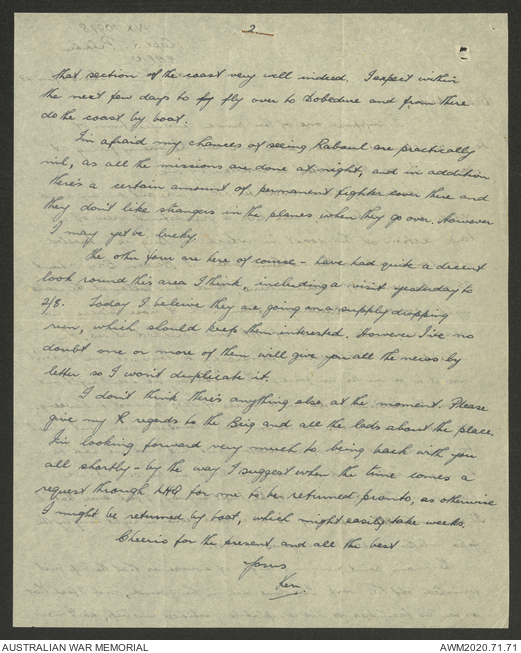 2
that section of the coast very well indeed. I expect within
the next few days to fly over to Dobodura and from there
do the coast by boat.
I'm afraid my chances of seeing Rabaul are practically
nil, as all the missions are done at night, and in addition
there's a certain amount of permanent fighter cover there and
they don't like strangers in the planes when they go over. However
I may yet be lucky.
The other four are here of course - have had quite a decent
look round this area I think, including a visit yesterday to
2/3. Today I beleive they are going on a supply dropping
run, which should keep them interested. However I've no
doubt one or more of them will give you all the news by
letter so I won't duplicate it.
I don't think there's anything else at the moment. Please
give my K regards to the Brig and all the lads about the place.
I'm looking forward very much to being back with you
all shortly - by the way I suggest when the time comes a
request through LHQ for me to be returned pronto, as otherwise
I might be returned by boat, which might easily take weeks.
Cheerio for the present, and all the best
Yours
Ken.
AUSTRALIAN WAR MEMORIAL
AWM2020.71.71